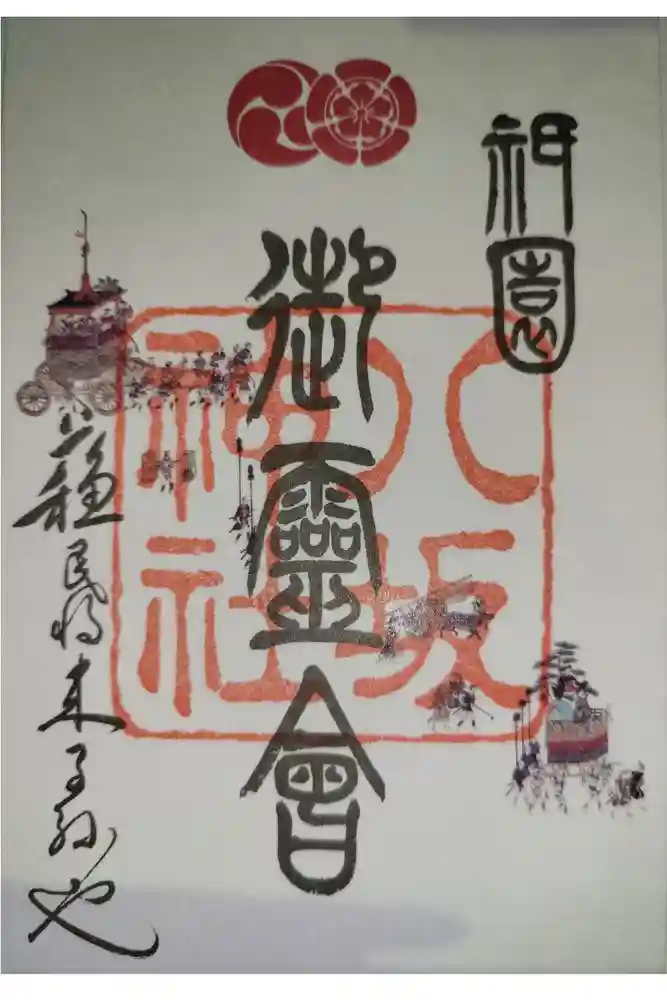 祇園
御靈會
蘓民将来子孫也
八坂
神社